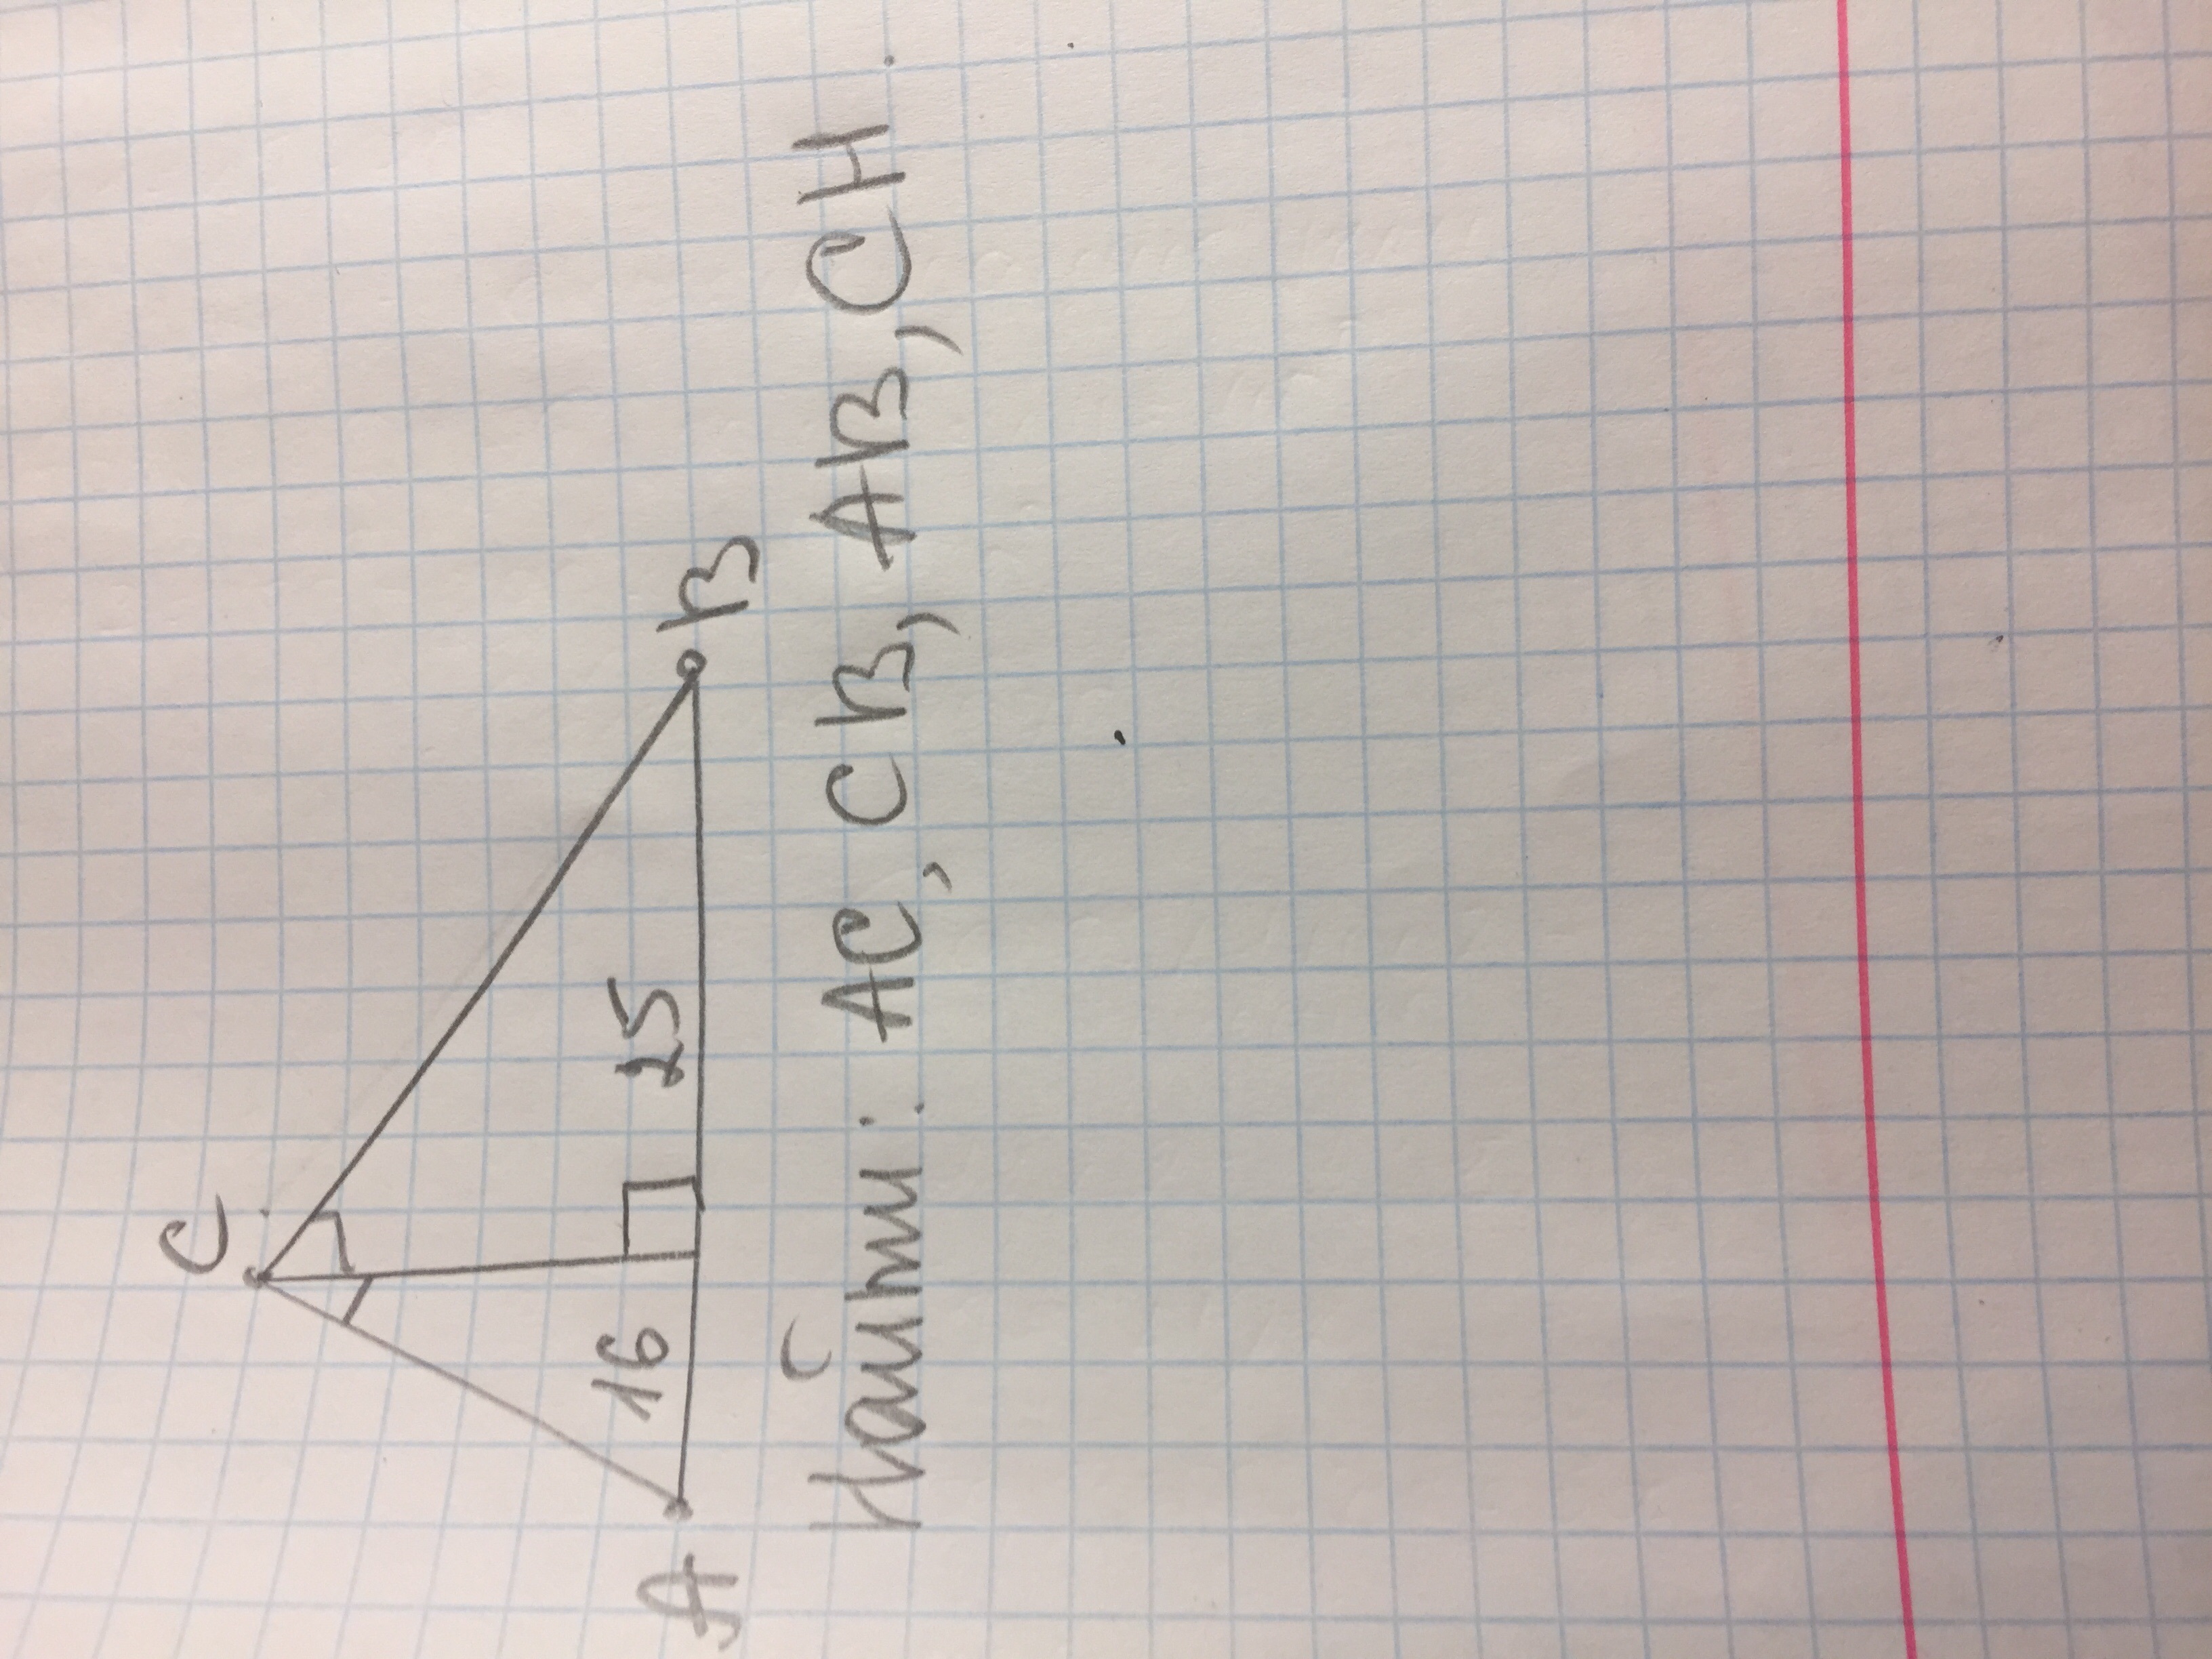 C
16 25
A B
Найти: AC, CB, AB, CH.